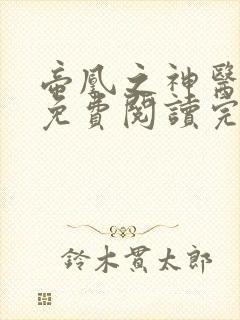 帝凰之神醫
免費閱讀完
鈴木貫太郎